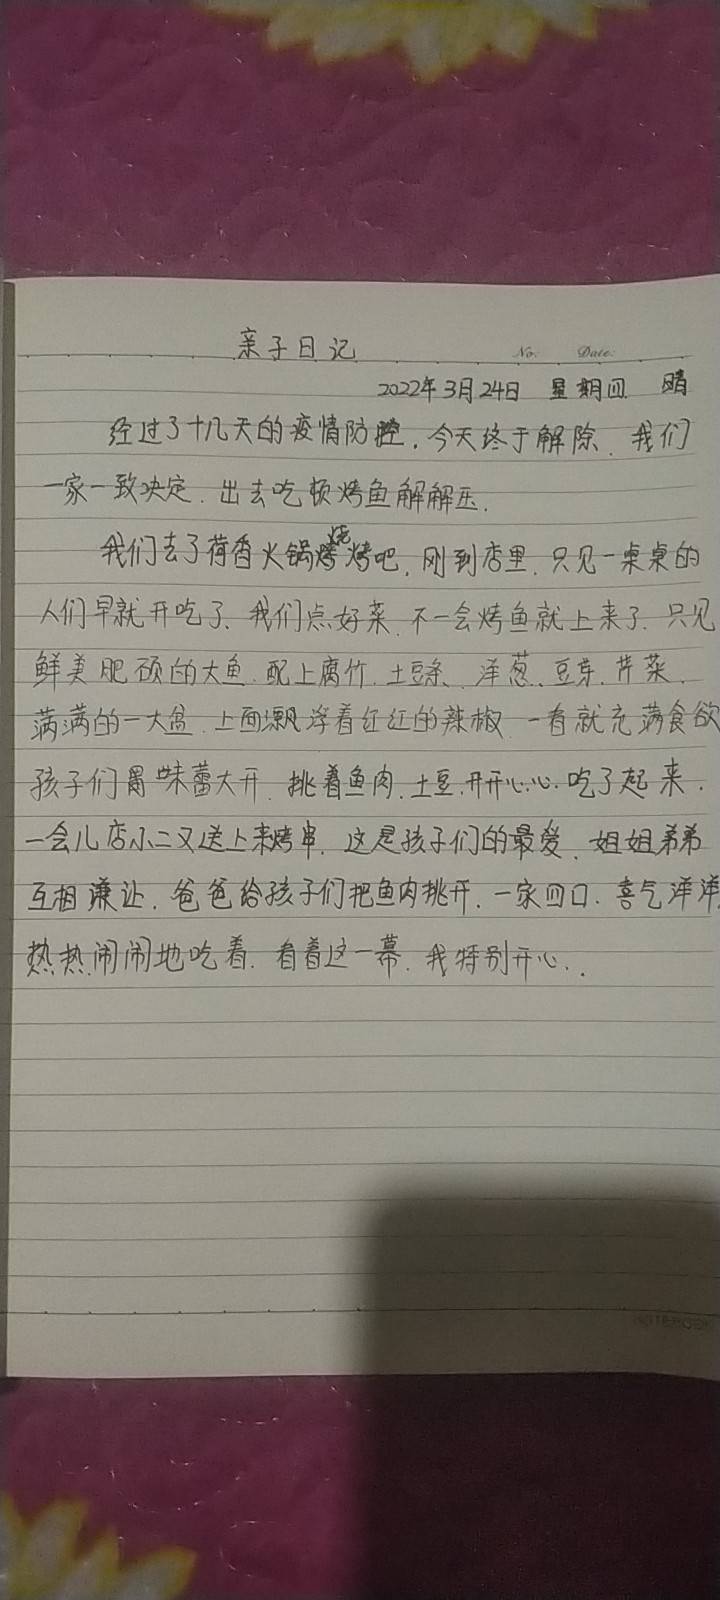 亲子日记
No. Date.
2022年3月24日 星期四 晴
经过了十几天的疫情防控,今天终于解除,我们
一家一致决定,出去吃顿烤鱼解解压.
我们去了荷香火锅烧烤吧,刚到店里,只见一桌桌的
人们早就开吃了,我们点好菜,不一会烤鱼就上来了,只见
鲜美肥硕的大鱼,配上腐竹、土豆条、洋葱、豆芽、芹菜,
满满的一大盆,上面飘浮着红红的辣椒,一看就充满食欲
孩子们胃味蕾大开,挑着鱼肉、土豆,开开心心吃了起来,
一会儿店小二又送上来烤串,这是孩子们的最爱,姐姐弟弟
互相谦让,爸爸给孩子们把鱼肉挑开,一家四口,喜气洋洋
热热闹闹地吃着,看着这一幕,我特别开心..
NOTEBOOK